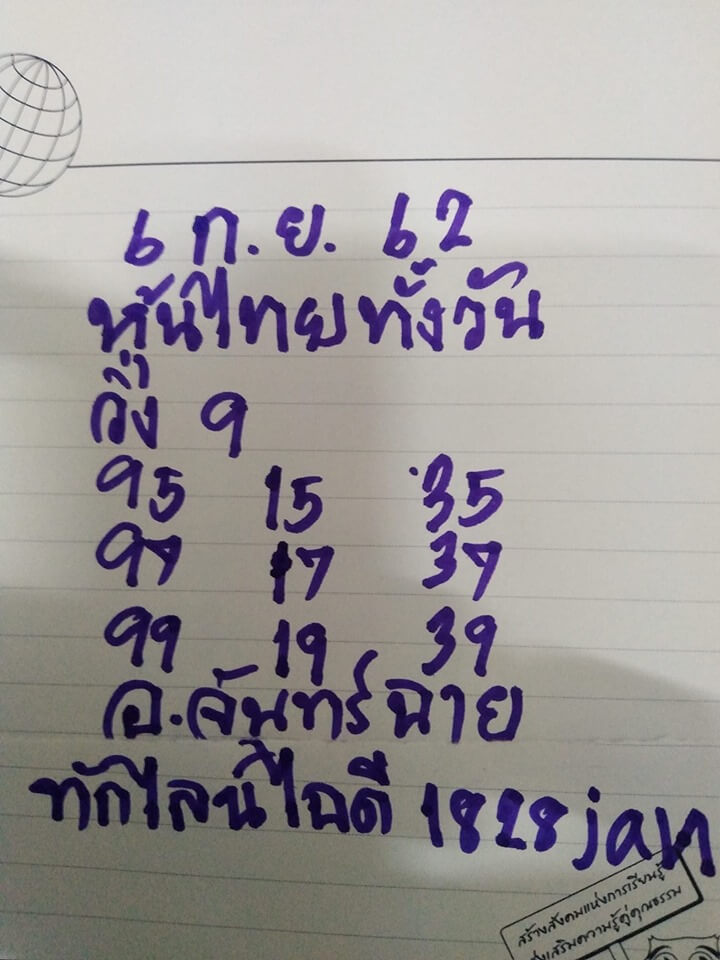 6 ก.ย. 62
หุ้นไทยทั้งวัน
วิ่ง 9
95 15 35
97 17 37
99 19 39
อ.จันทร์ฉาย
ทักไลน์ไอดี 1828jan
สร้างสังคมแห่งการเรียนรู้
ส่งเสริมความรู้คู่คุณธรรม